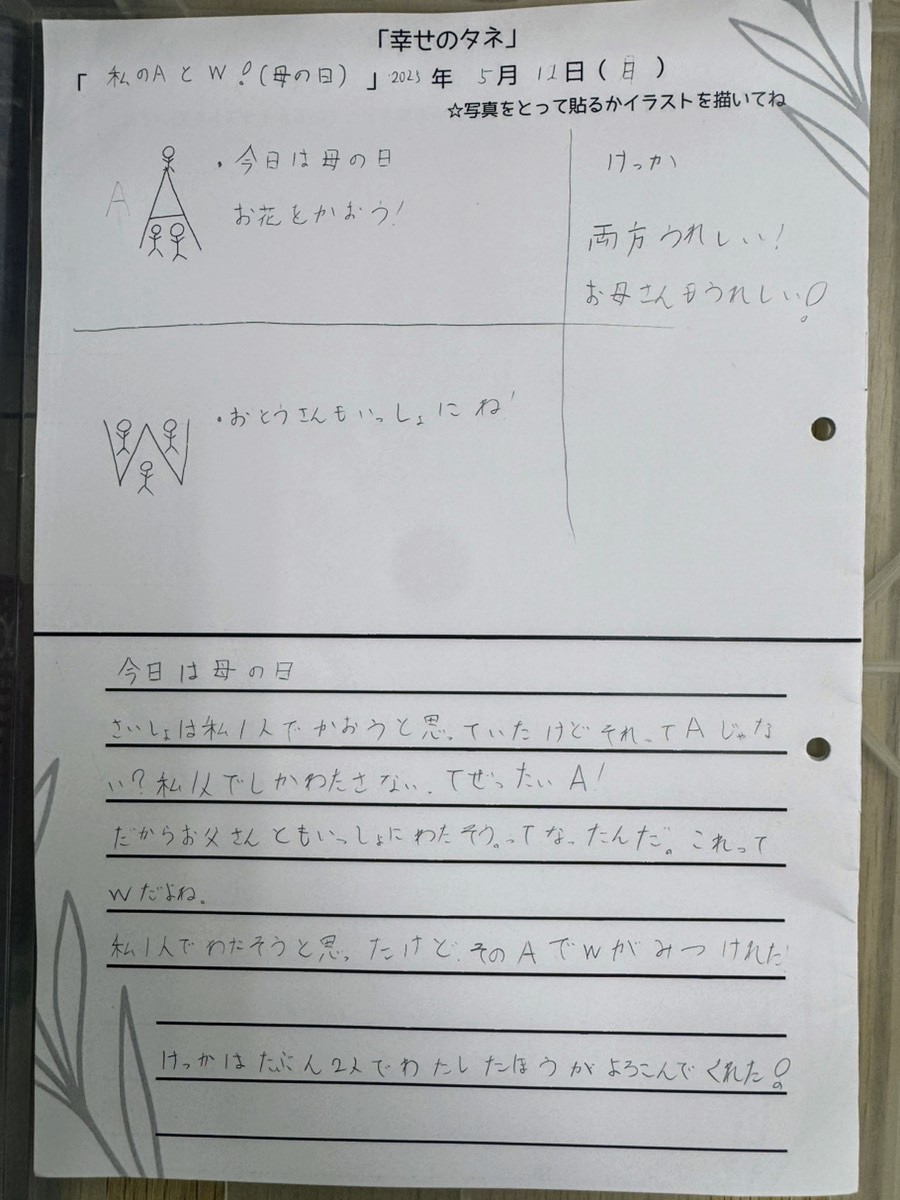 「幸せのタネ」
「 私のAとW!(母の日) 」2025年 5月 11日(日)
☆写真をとって貼るかイラストを描いてね
A
・今日は母の日
お花をかおう!
けっか
両方うれしい!
お母さんもうれしい!
・おとうさんもいっしょにね!
今日は母の日
さいしょは私1人でかおうと思っていたけどそれってAじゃな
い?私1人でしかわたさない、てぜったいA!
だからお父さんともいっしょにわたそう。ってなったんだ。これって
Wだよね。
私1人でわたそうと思ったけど、そのAでWがみつけれた!
けっかはたぶん2人でわたしたほうがよろこんでくれた!